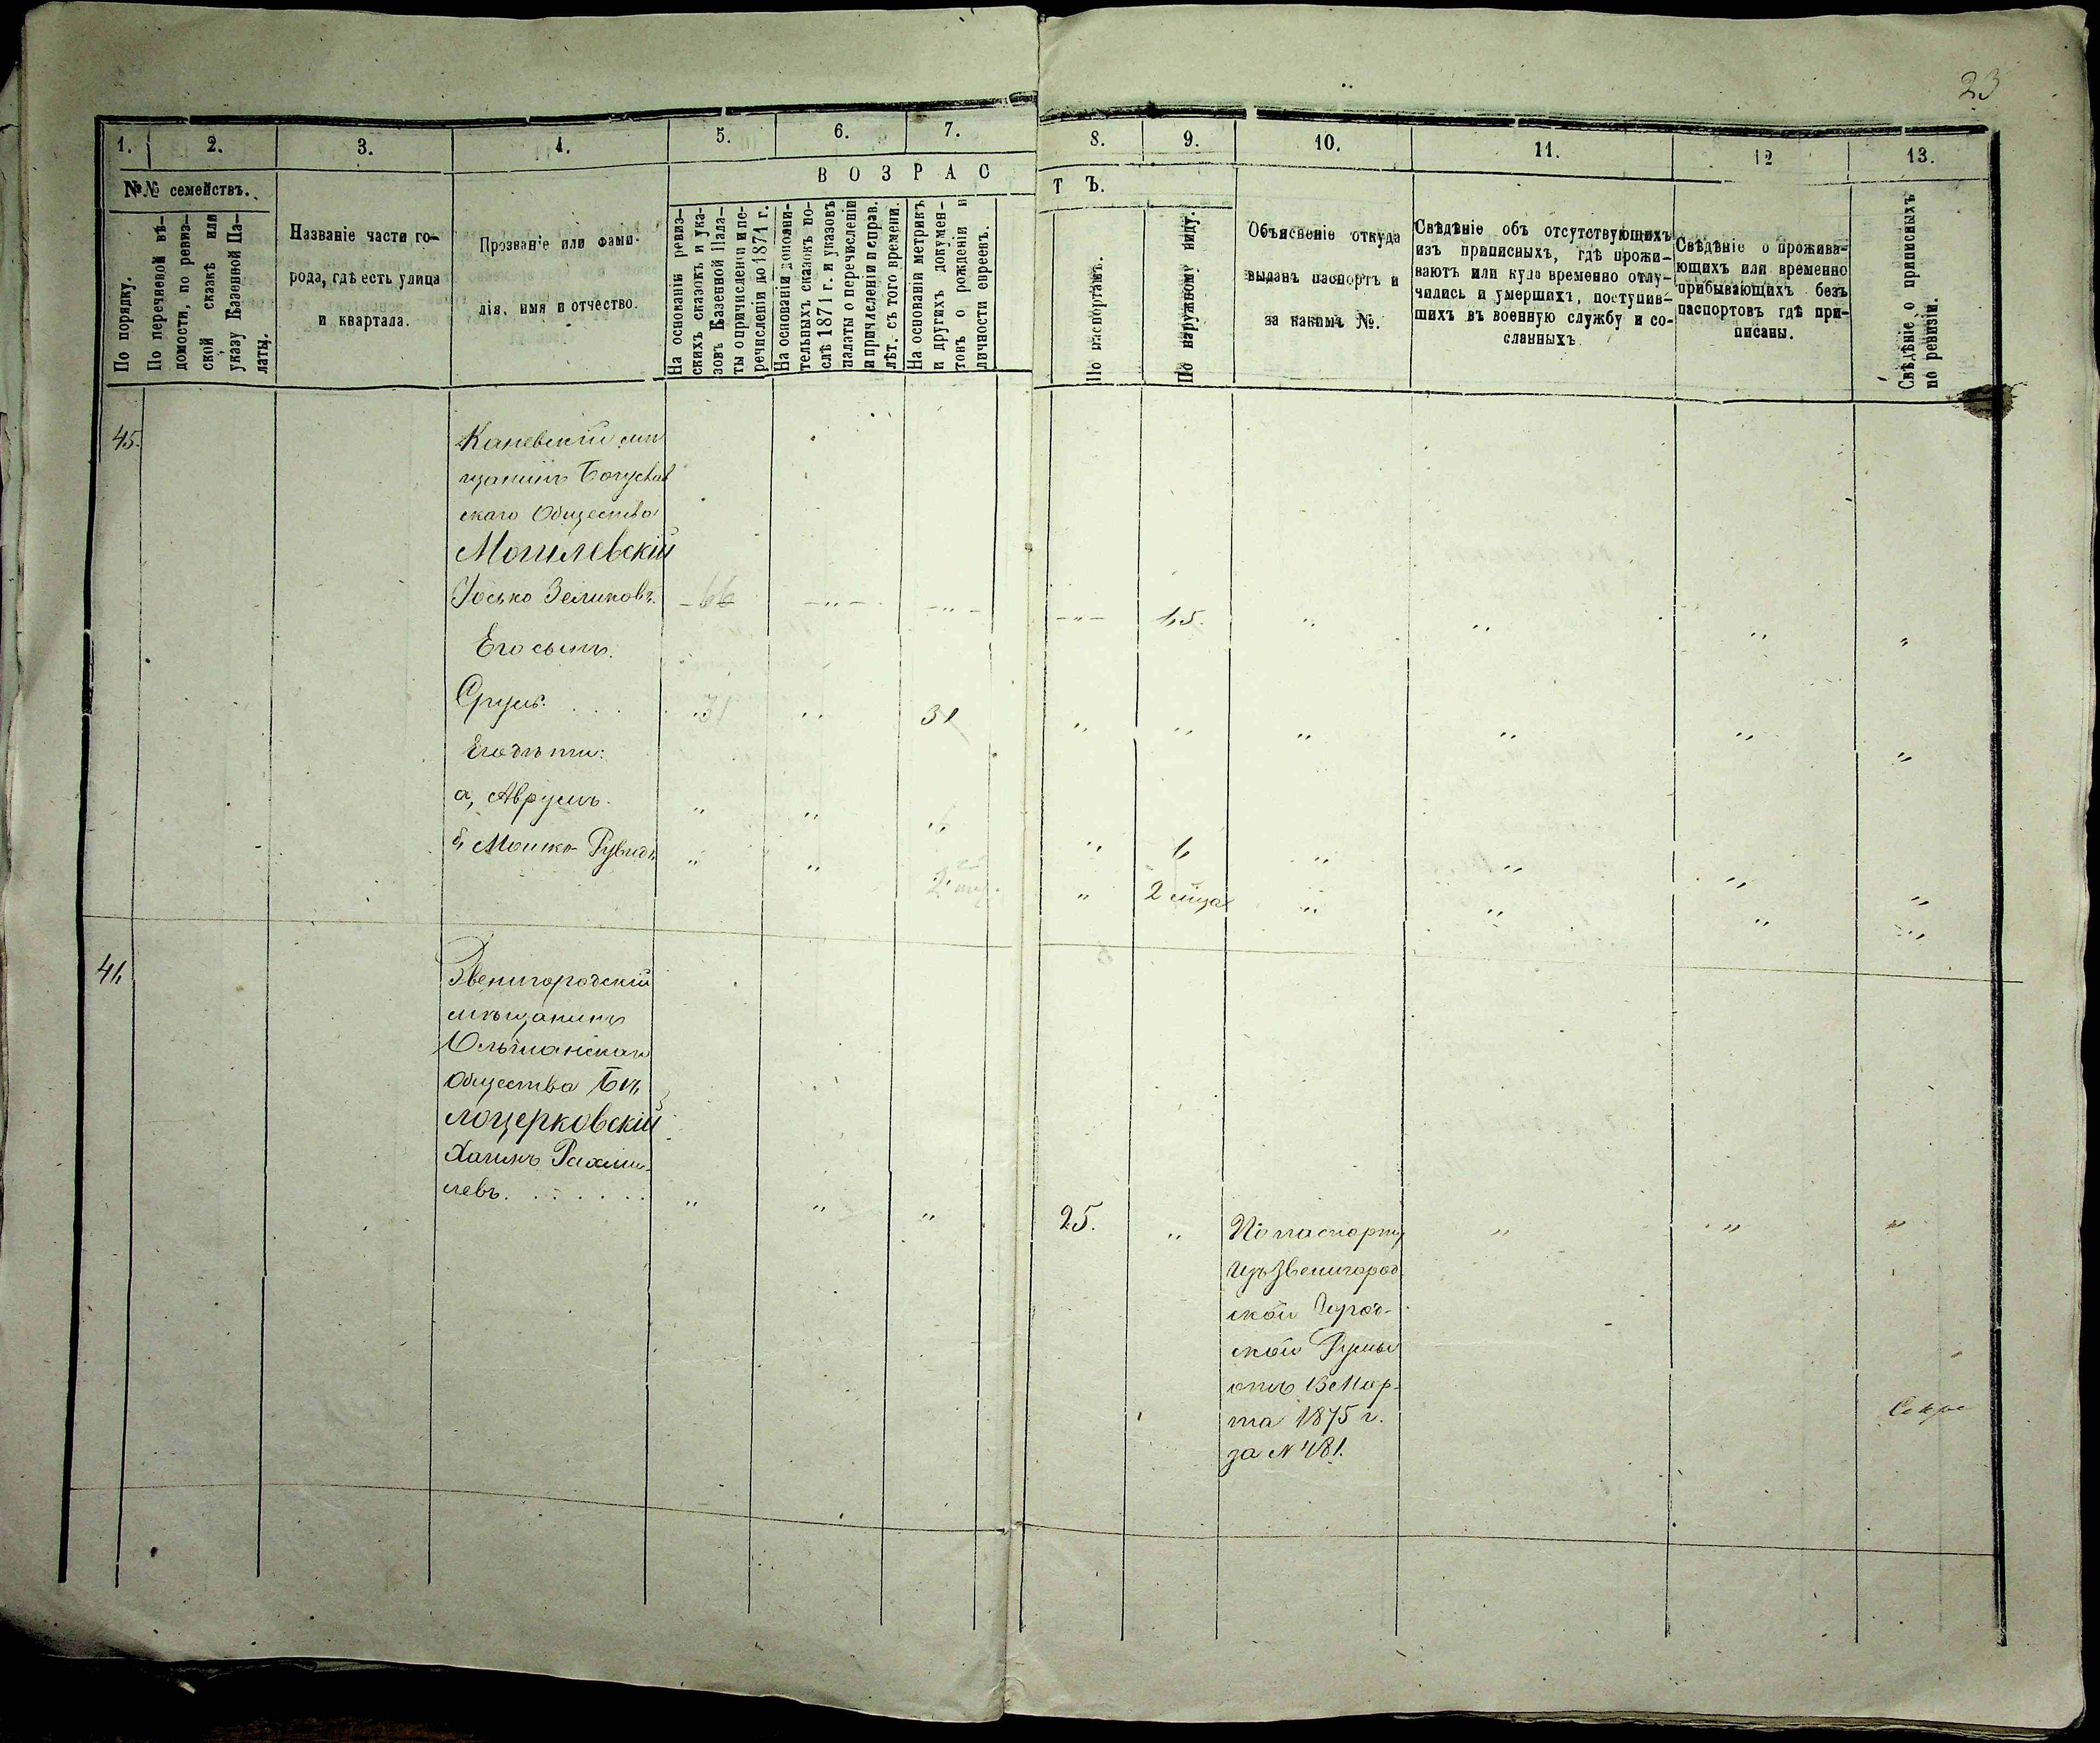 23
1. 2. 3. 4. 5. 6. 7. 8. 9. 10. 11. 12 13.
№№ семействъ.
ВОЗРАСТЪ.
По порядку.
По перечневой вѣ-
домости, по ревиз-
ской сказкѣ или
указу Казенной Па-
латы.
Названіе части го-
рода, гдѣ есть улица
и квартала.
Прозваніе или фами-
лія, имя и отчество.
На основаніи ревиз-
скихъ сказокъ и ука-
зовъ Казенной Пала-
ты о причисленіи и пе-
речисленіи до 1871 г.
На основаніи дополни-
тельныхъ сказокъ по-
слѣ 1871 г. и указовъ
палаты о перечисленіи
и причисленіи и справ.
лѣт. съ того времени.
На основаніи метрикъ
и другихъ докумен-
товъ о рожденіи и
личности евреевъ.
По паспортамъ.
По наружному виду.
Объясненіе откуда
выданъ паспортъ и
за какимъ №.
Свѣдѣніе объ отсутствующихъ
изъ приписныхъ, гдѣ прожи-
ваютъ или куда временно отлу-
чились и умершихъ, поступив-
шихъ въ военную службу и со-
сланныхъ
Свѣдѣніе о прожива-
ющихъ или временно
прибывающихъ безъ
паспортовъ гдѣ при-
писаны.
Свѣдѣніе о приписныхъ
по ревизіи.
45.
Каневскій мѣ
щанинъ Богуслав
скаго Общества
Могилевскій
Іосько Зеликовъ. - 66 - " - - " - - " - 65. " " " "
Его сынъ:
Срулъ. . . . " 31 " 31 " " " " " "
Его дѣти:
а, Аврумъ. " " " " 6 " " " "
б, Мошко-Рувидъ " " " " 2 мѣца " " " "
46
Звенигородскій
мѣщанинъ
Ольшанскаго
Общества Бѣ
лоцерковскій
Хаимъ Рахми-
левъ. . . . . . . " " " 25. " По паспорту " " "
Изъ Звенигород
ской Город-
ской Думы
отъ 13 Мар-
та 1875 г.
за № 481.
Секре